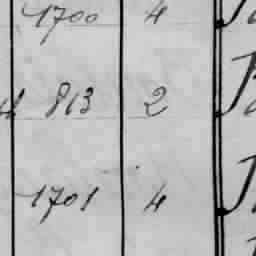 1700 4
813 2
1701 4